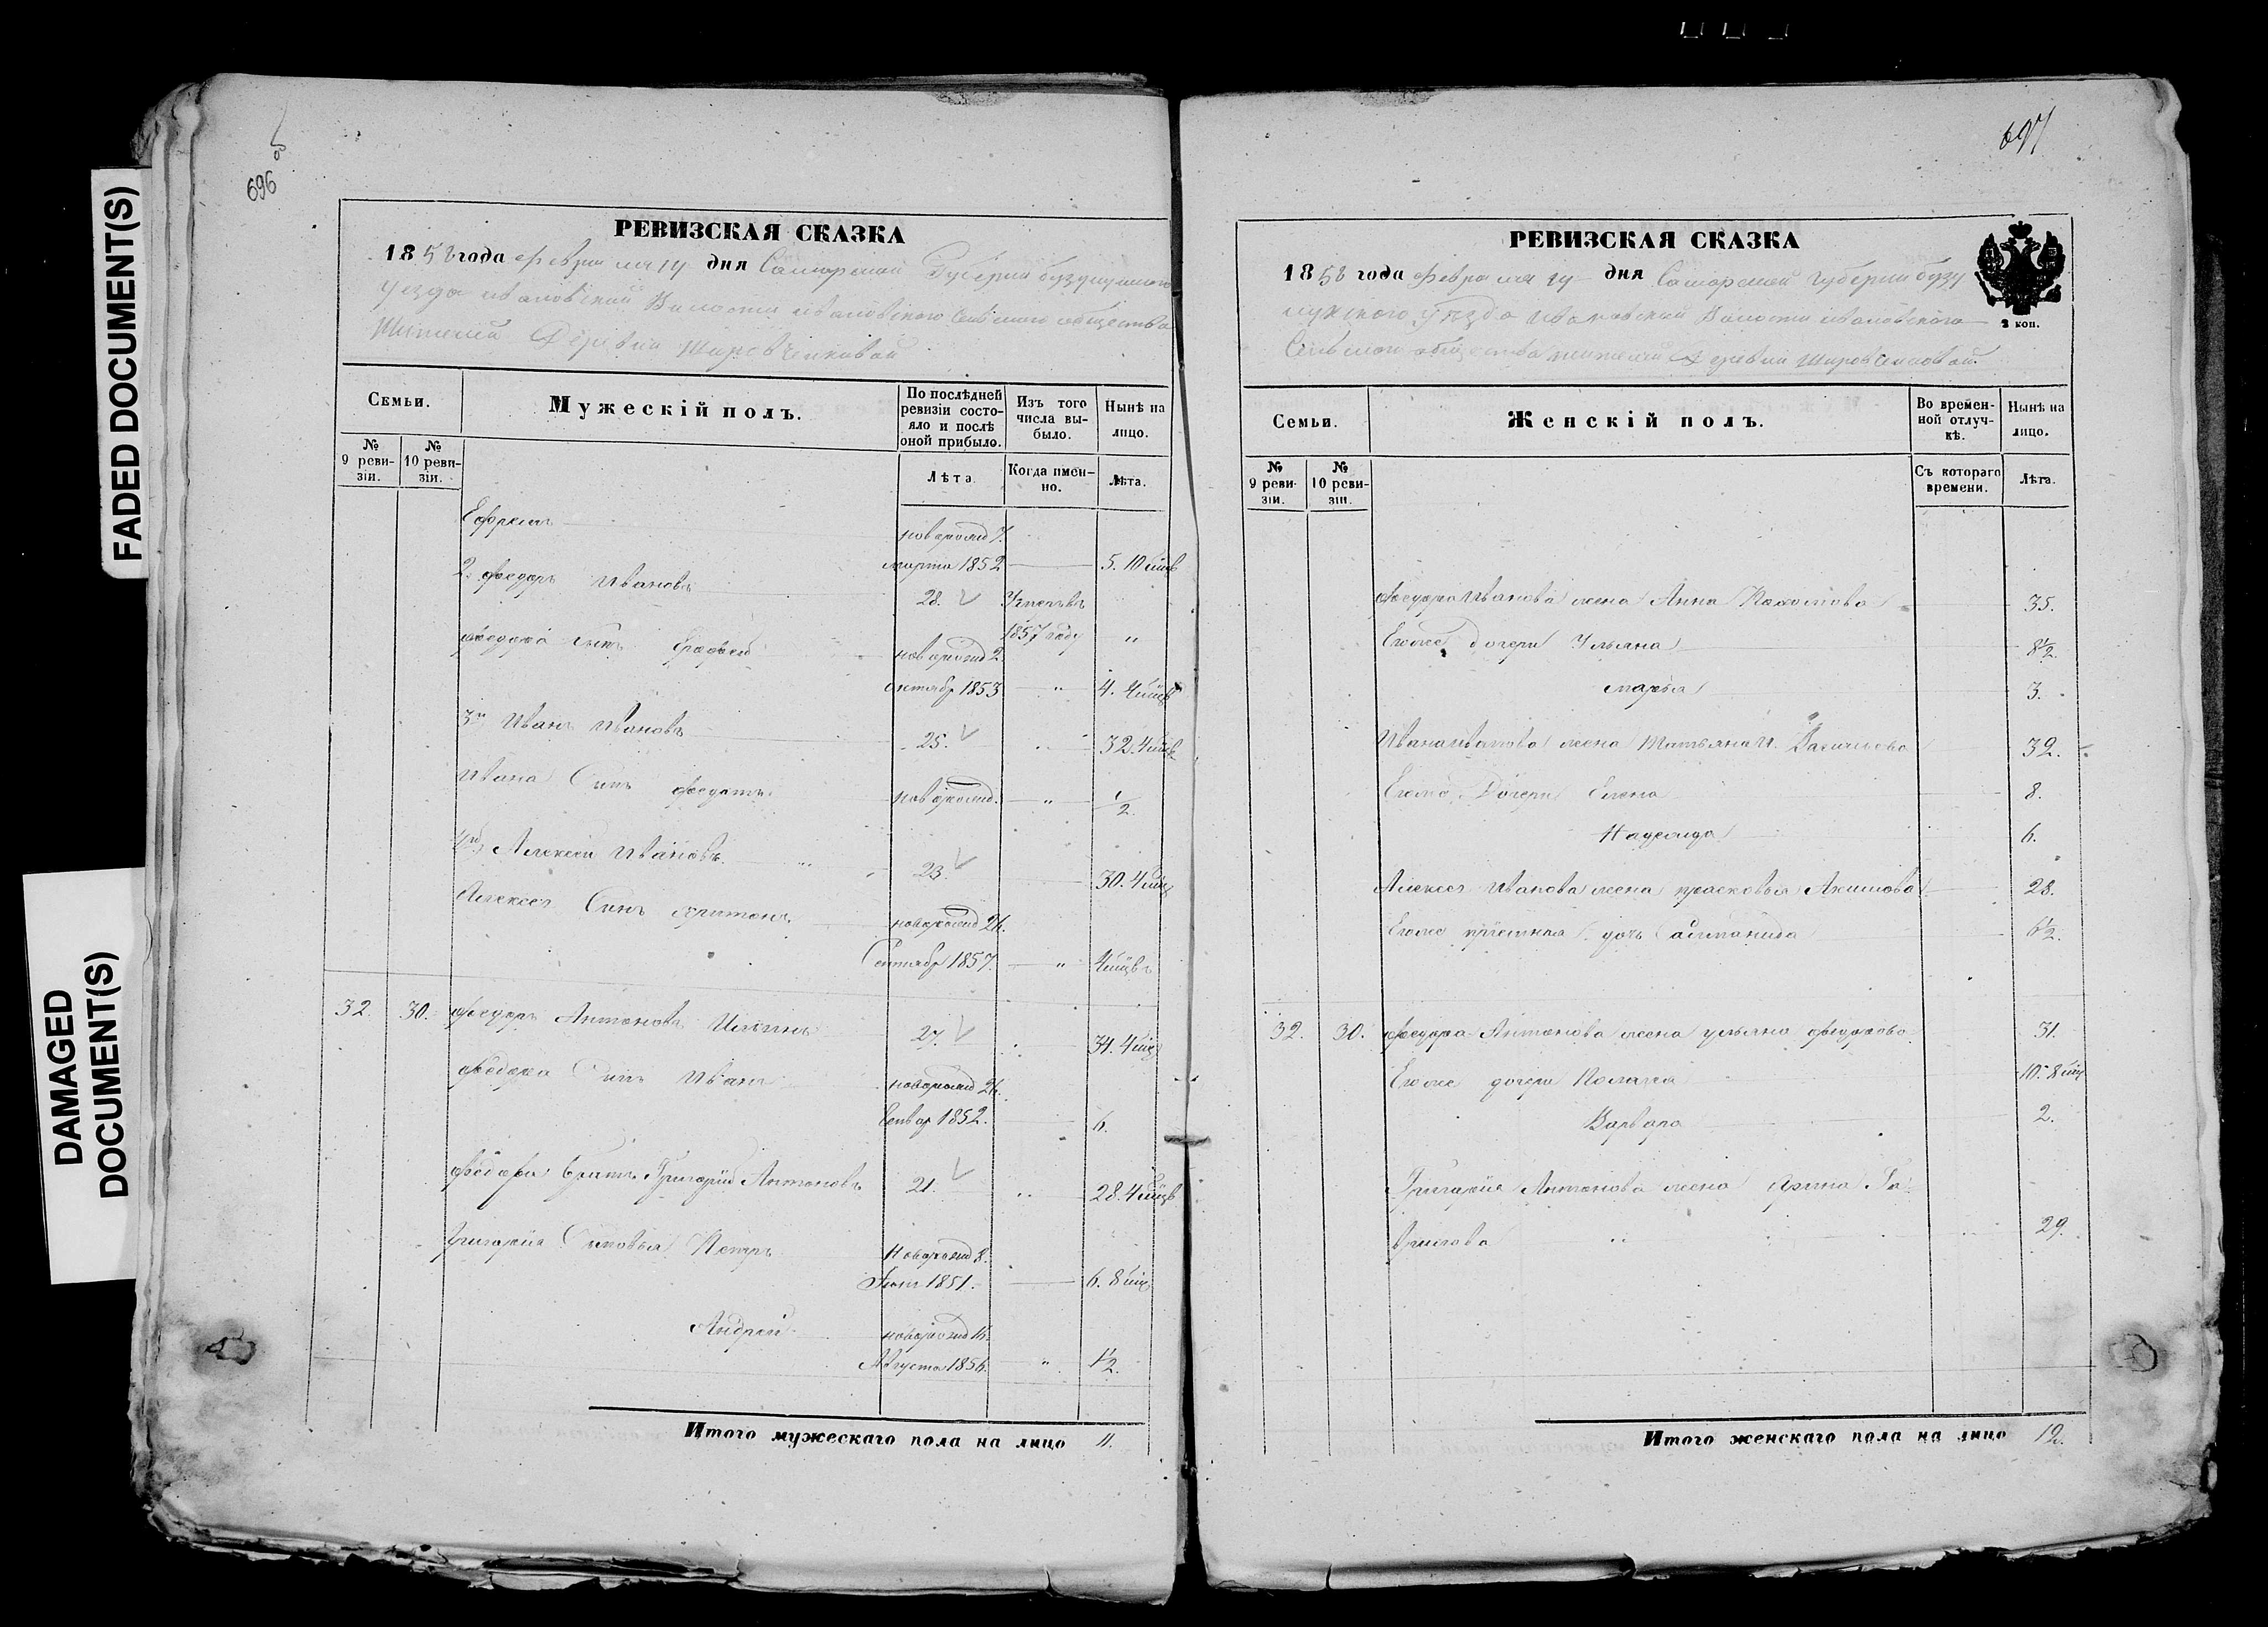 696
РЕВИЗСКАЯ СКАЗКА
1858 года Февраля 14 дня Самарской Губернии бузулукского
Уезда ивановской Волости ивановского Сельского общества
Жителей Деревни
Семьи.
Мужескій полъ.
По послѣдней ревизіи состояло и послѣ оной прибыло.
Изъ того числа выбыло.
Нынѣ на лицо.
№ 9 ревизіи.
№ 10 ревизіи.
Лѣта.
Когда именно.
Лѣта.
Ефремъ новорожд 7.
марта 1852 5. 10 мцв
2й федоръ Ивановъ 28. V
1857 году "
федора сынъ новорожд 2
октябр 1853 " 4. 4 мцв
3й Иванъ Ивановъ 25. V " 32. 4 мцв
Ивана Сынъ федотъ новорожд. " 1/2
4й Алексей Ивановъ 23. V 30. 4 мц
Алексея Сынъ харитонъ новорожд 26.
Сентябр 1857. " 4 мцвъ
32. 30. федоръ Антоновъ 27. V 34. 4 мц
федора Сынъ Иванъ новорожд 26.
Генвар 1852. 6.
федора братъ Григорій Антоновъ 21. V " 28. 4 мцв
Григорія Сыновья Петръ Новорожд 8.
1851. 6. 8 мц
Андрей новорожд 16.
Августа 1856. " 1 1/2.
Итого мужескаго пола на лицо 11.
697
РЕВИЗСКАЯ СКАЗКА
1858 года Февраля 14 дня Самарской Губернии бузу
лукского Уезда Ивановской Волости ивановского
Сельского общества жителей Деревни
2 коп.
Семьи.
Женскій полъ.
Во временной отлучкѣ.
Нынѣ на лицо.
№ 9 ревизіи.
№ 10 ревизіи.
Съ котораго времени.
Лѣта.
федора Иванова жена Анна Пахомова 35.
Егоже дочери Ульяна 8 1/2.
марья 3.
Ивана Иванова жена Татьяна 32.
Егоже Дочери Елена 8.
Надежда 6.
Алексея Иванова жена прасковья Акимова 28.
Егоже приемная дочь 6 1/2.
32. 30. федора Антонова жена ульяна федорова 31.
Егоже дочери 10. 8 мц
Варвара 2.
Григорія Антонова жена Арина Га-
врилова 29.
Итого женскаго пола на лицо 12.
FADED DOCUMENT(S)
DAMAGED
DOCUMENT(S)